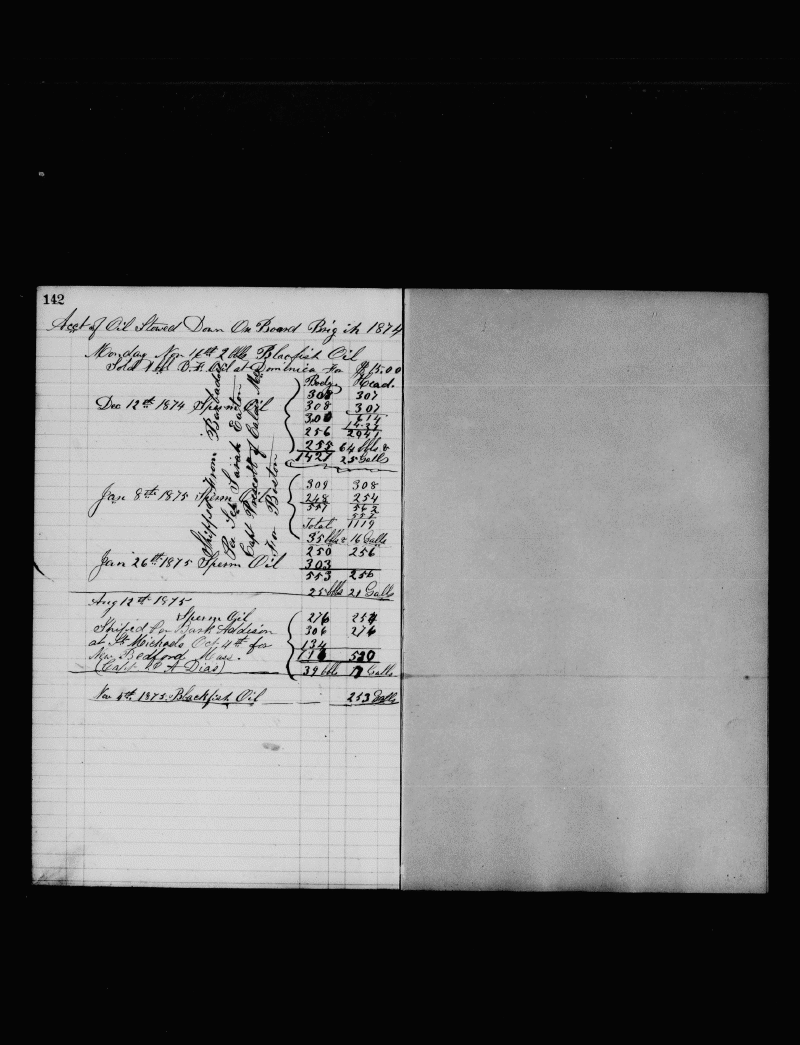 142
Acct of Oil Stowed Down On Board Brig in 1874
Monday Nov 16th 2 bbls Blackfish Oil
Sold 1 bbl B.F. Oil at Dominica for $15.00
Body Head
308 307
Dec 12th 1874 Sperm Oil 308 307
300 614
256 1427
255 2041
1427 64 bbls &
25 Galls
Shipped from Barbados
Per Sch Sarah Eaton
Capt Prescott of Calais Me
For Boston
309 308
Jan 8th 1875 Sperm Oil 248 254
557 562
557
Total 1119
35 bbls 16 Galls
250 256
Jan 26th 1875 Sperm Oil 303
553 256
25 bbls 21 Galls
Aug 12th 1875
Sperm Oil 276 254
Shiped Per Bark Addison 306 276
at St Michaels Oct 4th for 134
New Bedford Mass. 716 530
(Capt A Dias) 39 bbls 17 Galls
Nov 4th 1875 Blackfish Oil 253 Galls